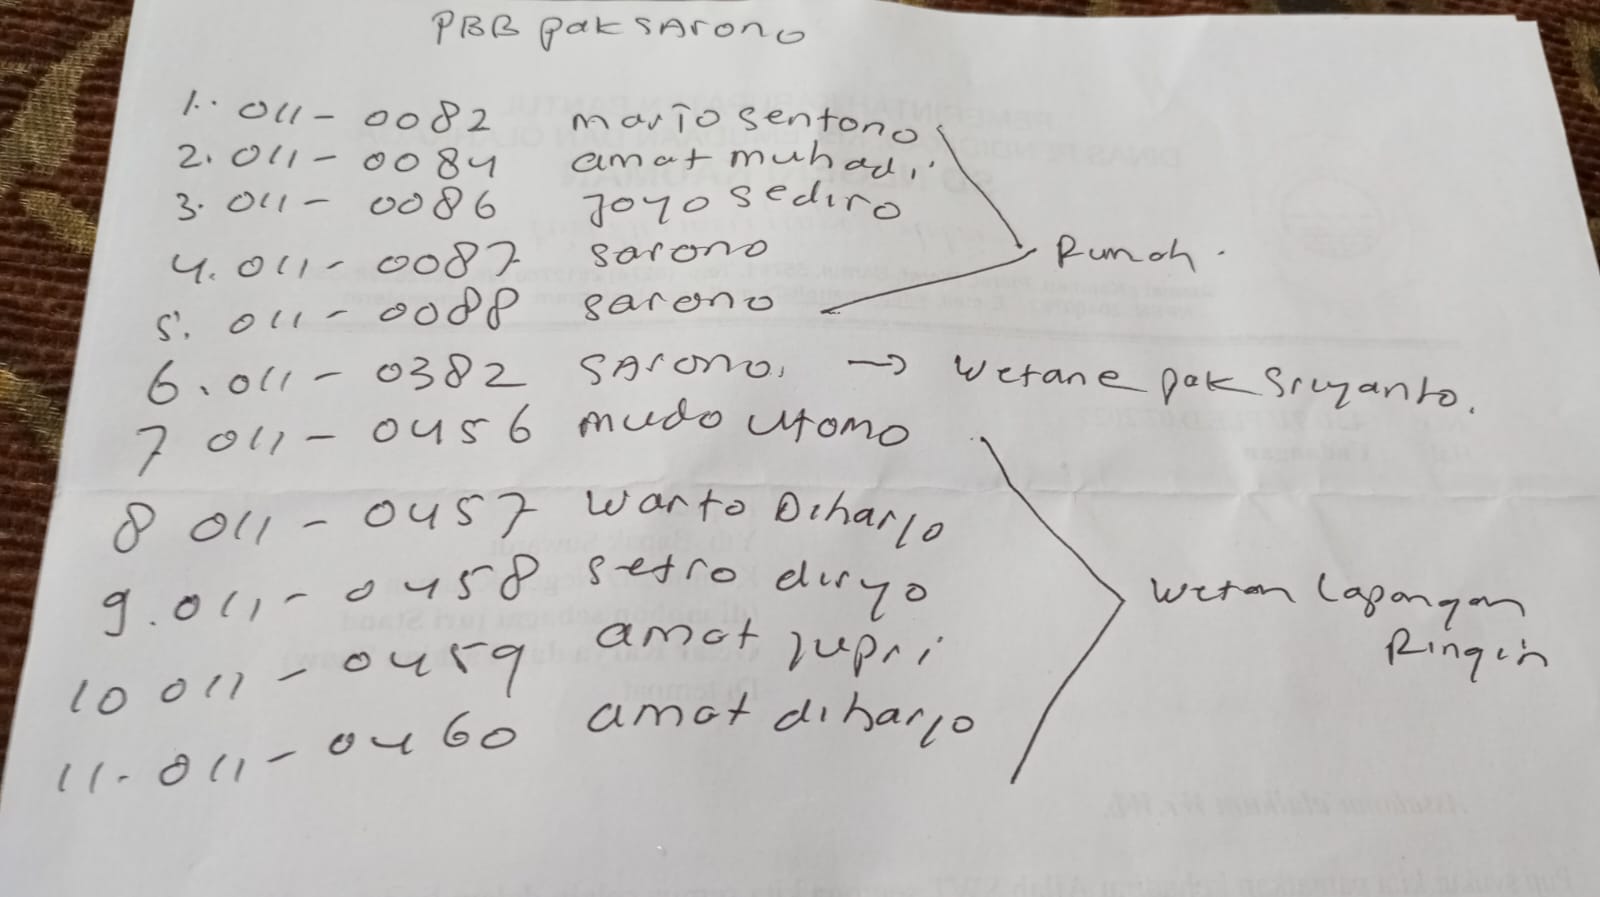 PBB pak SArono
1. 011 - 0082 marto sentono
2. 011 - 0084 amat muhadi
3. 011 - 0086 Joyo sediro
4. 011 - 0087 sarono
5. 011 - 0088 sarono
Rumah.
6. 011 - 0382 SArono, → wetane pak Sriyanto.
7 011 - 0456 mudo utomo
8 011 - 0457 warto Diharjo
9. 011 - 0458 setro diryo
10 011 - 0459 amat jupri
11. 011 - 0460 amat diharjo
wetan lapangan
Ringin